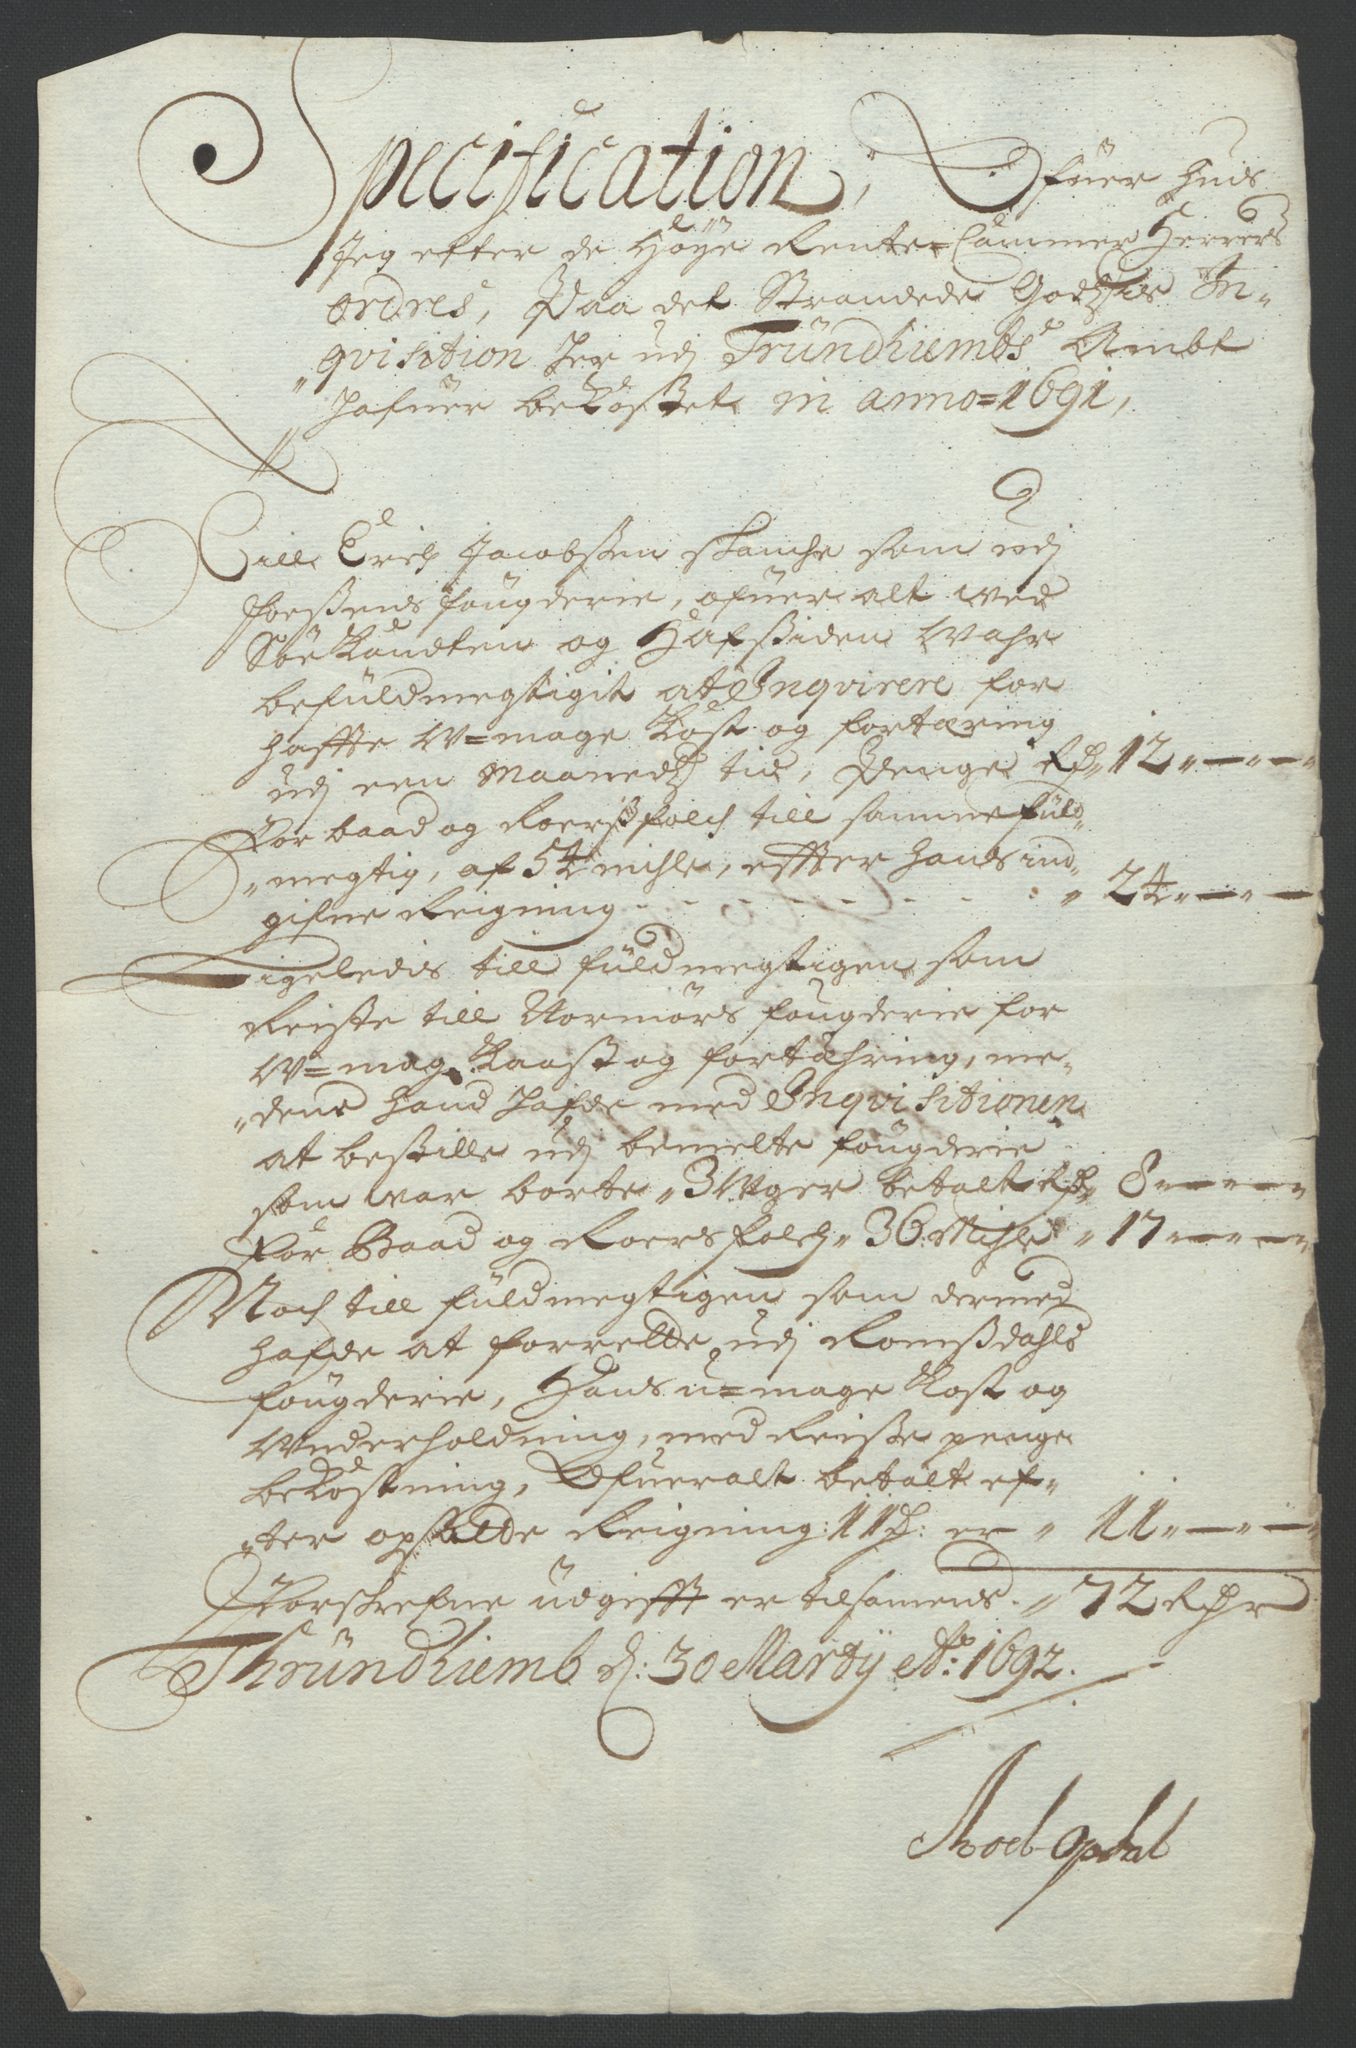 Specification, Ofuer hvis
Jeg efter de Höÿe Rente=Cammer Herrers
ordres, Paa det Strandede Godtzis In-
qvisition her udj Trundhiembs Ambt
hafuer bekostet in anno=1691,
Till Erich Jacobsen som udj
Foesens fougderie, ofuer alt ved
Söe Kandten og Hafsiden wahr
befuldmegtigit at Inqvirere for
haffte W=mage Kost og fortæring
udj een Maanedtz tid, Penge Rd 12
For baad og Roersfolch till samme fuld-
megtig, af 54 mihle, effter hands ind-
gifne Reigning 24
Ligeledis till fuldmegtigen som
Reiste till Normörs fougderie for
W=mag Kaast og fortæhring, me-
dens hand hafde med Inqvisitionen
at bestille udj bemelte fougderie
som war borte 3 Uger betalt Rd 8
For Baad og Roersfolch 36 Mihle 17
Noch till fuldmegtigen som dermed
hafde at forrette udj Romsdahls
fougderie, Hans u=mage Kost og
Underholdning, med Reise penge
bekostning, Ofueralt betalt ef-
ter opsatte Reigning 11 d: er 11
Forschrefne udgifft er tilsamens 72 Rdr
Thrundhiemb d: 30 Martÿ Ao: 1692.
Opdal